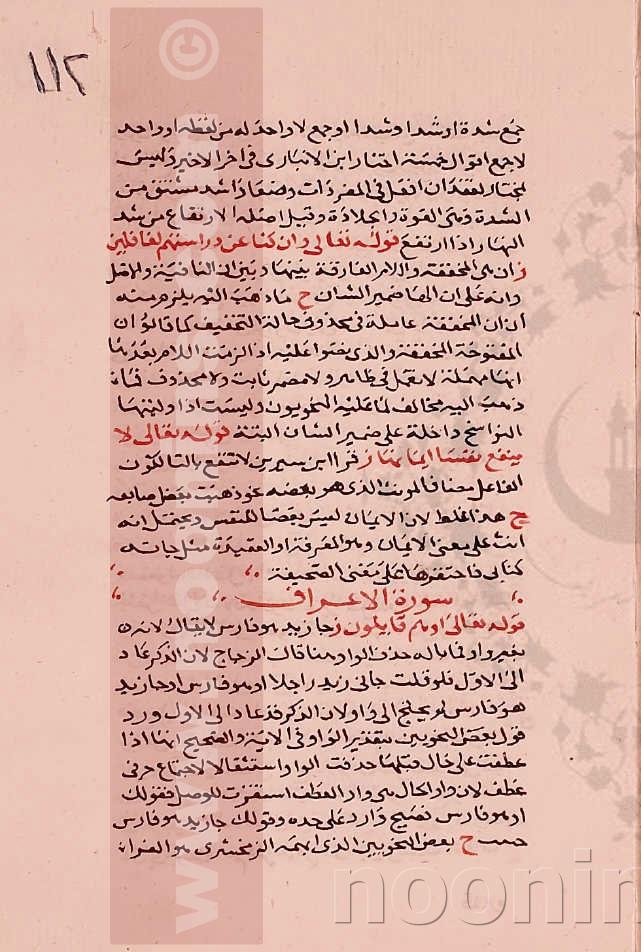 ١١٢
جمع شدة او شد او شد او جمع لا واحد له من لفظه او واحد
لا جمع اقوال خمسة اختار ابن الانبارى فى اخر الاخير وليس
بمختار لفقدان افعل فى المفردات وضعا واشد مشتق من
الشدة وهى القوة والجلادة وقيل اصله الارتفاع من شد
النهار اذا ارتفع قوله تعالى وان كنا عن دراستهم لغافلين
ز ان هى المخففة واللام الفارقة بينها وبين ان النافية والاصل
وانه على ان الها ضمير الشان ح ما ذهب اليه يلزم منه
ان ان المخففة عاملة فى محذوف حالة التخفيف كما قالوا ان
المفتوحة المخففة والذى نصوا عليه اذا لزمت اللام بعدها
انها مهملة لا تعمل فى ظاهر ولا مضمر ثابت ولا محذوف فما
ذهب اليه مخالف لما عليه النحويون وليست اذا وليتها
النواسخ داخلة على ضمير الشان البتة قوله تعالى لا
ينفع نفسا ايمانها ز قرا ابن سيرين لا تنفع بالتا لكون
الفاعل مضافا لمونث الذى هو بعضه نحو ذهبت بعض اصابعه
ح هذا غلط لان الايمان ليس بعضا للنفس ويحتمل انه
انث على معنى الايمان وهو المعرفة او العقيدة مثل جاته
كتابى فاحتقرها على معنى الصحيفة
سورة الاعراف
قوله تعالى او هم قايلون ز جا زيد هو فارس لا يقال لانه
بغير واو فما باله حذف الواو هنا قال الزجاج لان الذكر عاد
الى الاول فلو قلت جانى زيد راجلا او هو فارس او جا زيد
هو فارس لم يحتج الى واو لان الذكر قد عاد الى الاول ورد
قول بعض النحويين بتقدير الواو فى الاية والصحيح انها اذا
عطفت على حال قبلها حذفت الواو استثقالا لاجتماع حرفى
عطف لان واو الحال هى واو العطف استعيرت للوصل فقولك
او هو فارس فصيح وارد على حده وقولك جا زيد هو فارس
خبيث ح بعض النحويين الذى ابهمه الزمخشرى هو الفراء
www.noonin
©
noonin